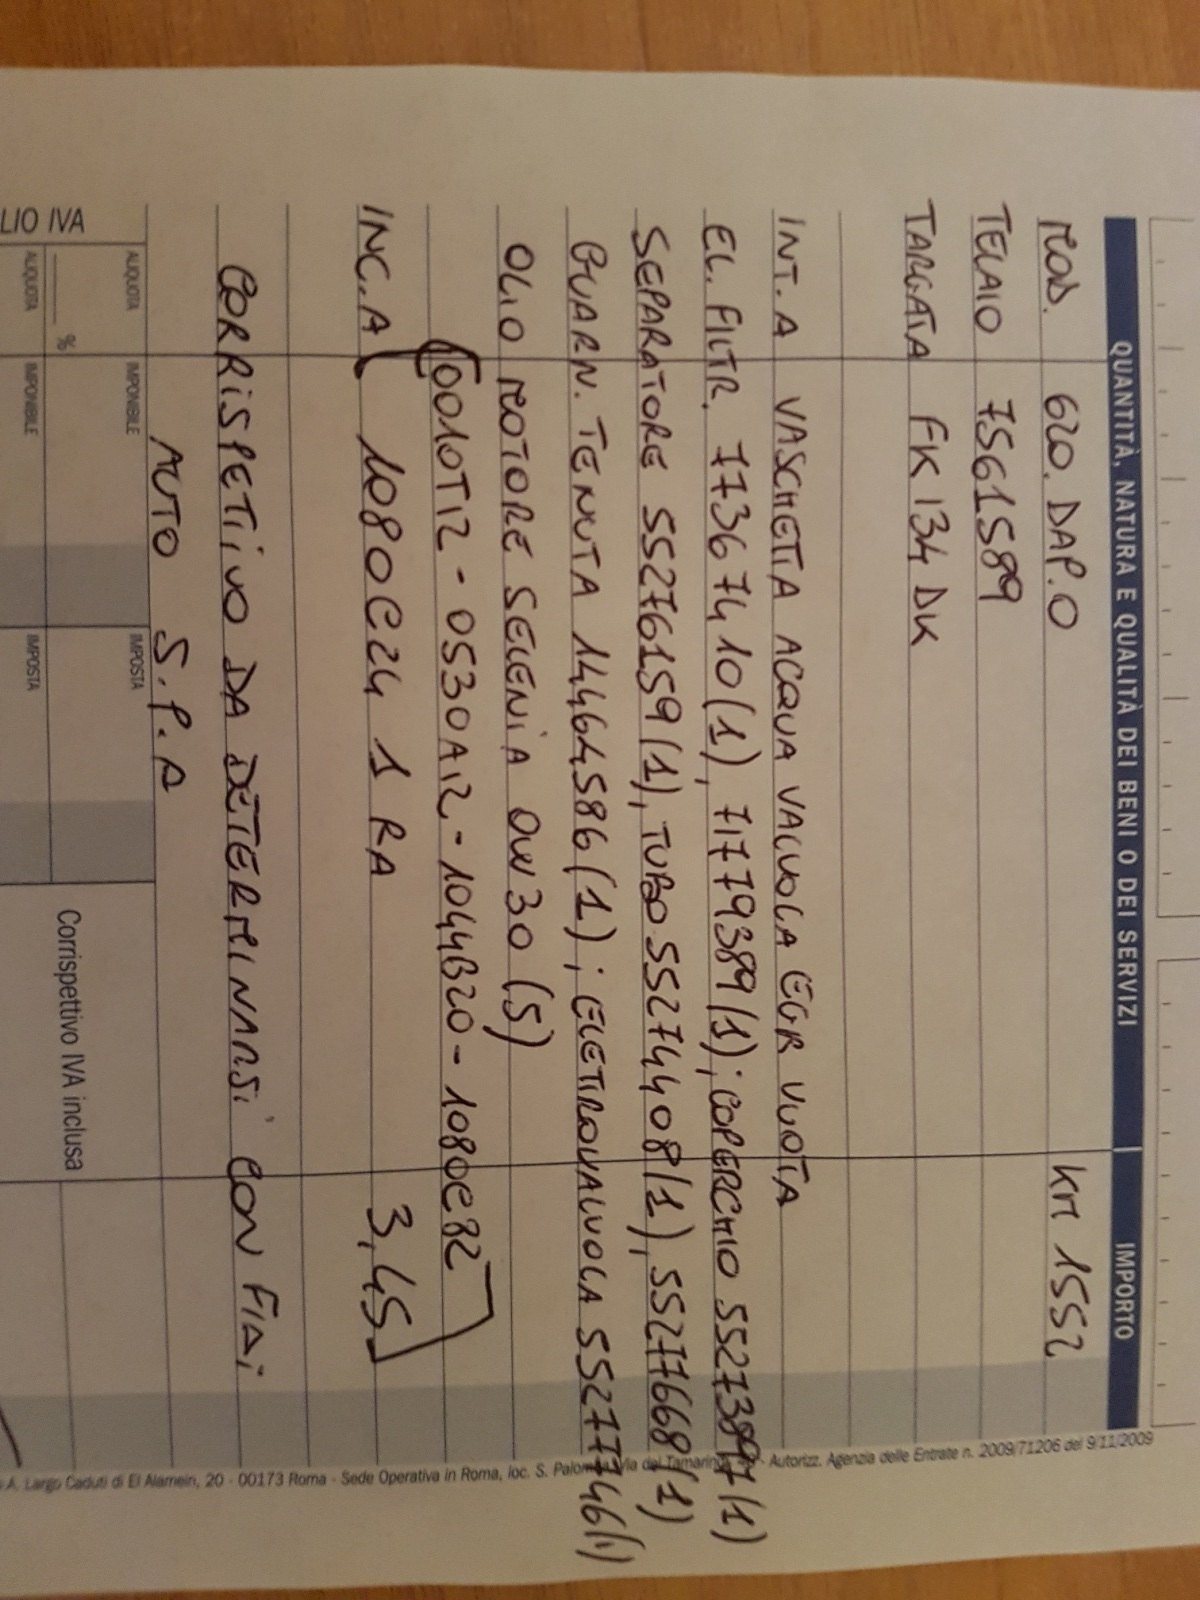 QUANTITÀ, NATURA E QUALITÀ DEI BENI O DEI SERVIZI IMPORTO
MOD. 620. DAP.0 KM 1552
TELAIO 7561589
TARGATA FK134DK
INT. A VASCHETTA ACQUA VALVOLA EGR VUOTA
EL. FILTR. 77367410(1), 71779389(1); COPERCHIO 55273897(1)
SEPARATORE 55276159(1), TUBO 55274408(1), 55277668(1)
GUARN. TENUTA 14464586(1); ELETTROVALVOLA 55277746(1)
OLIO MOTORE SELENIA 0W30 (5)
0010T12 - 0530A12 - 1044B20 - 1080C82
INC. A 1080C24 1 RA 3,45
CORRISPETIVO DA DETERMINARSI CON FIAT
AUTO S.P.A
LIO IVA
ALIQUOTA IMPONIBILE IMPOSTA
%
ALIQUOTA IMPONIBILE IMPOSTA
Corrispettivo IVA inclusa
A. Largo Caduti di El Alamein, 20 - 00173 Roma - Sede Operativa in Roma, loc. S. Via dei - Autorizz. Agenzia delle Entrate n. 2009/71206 del 9/11/2009